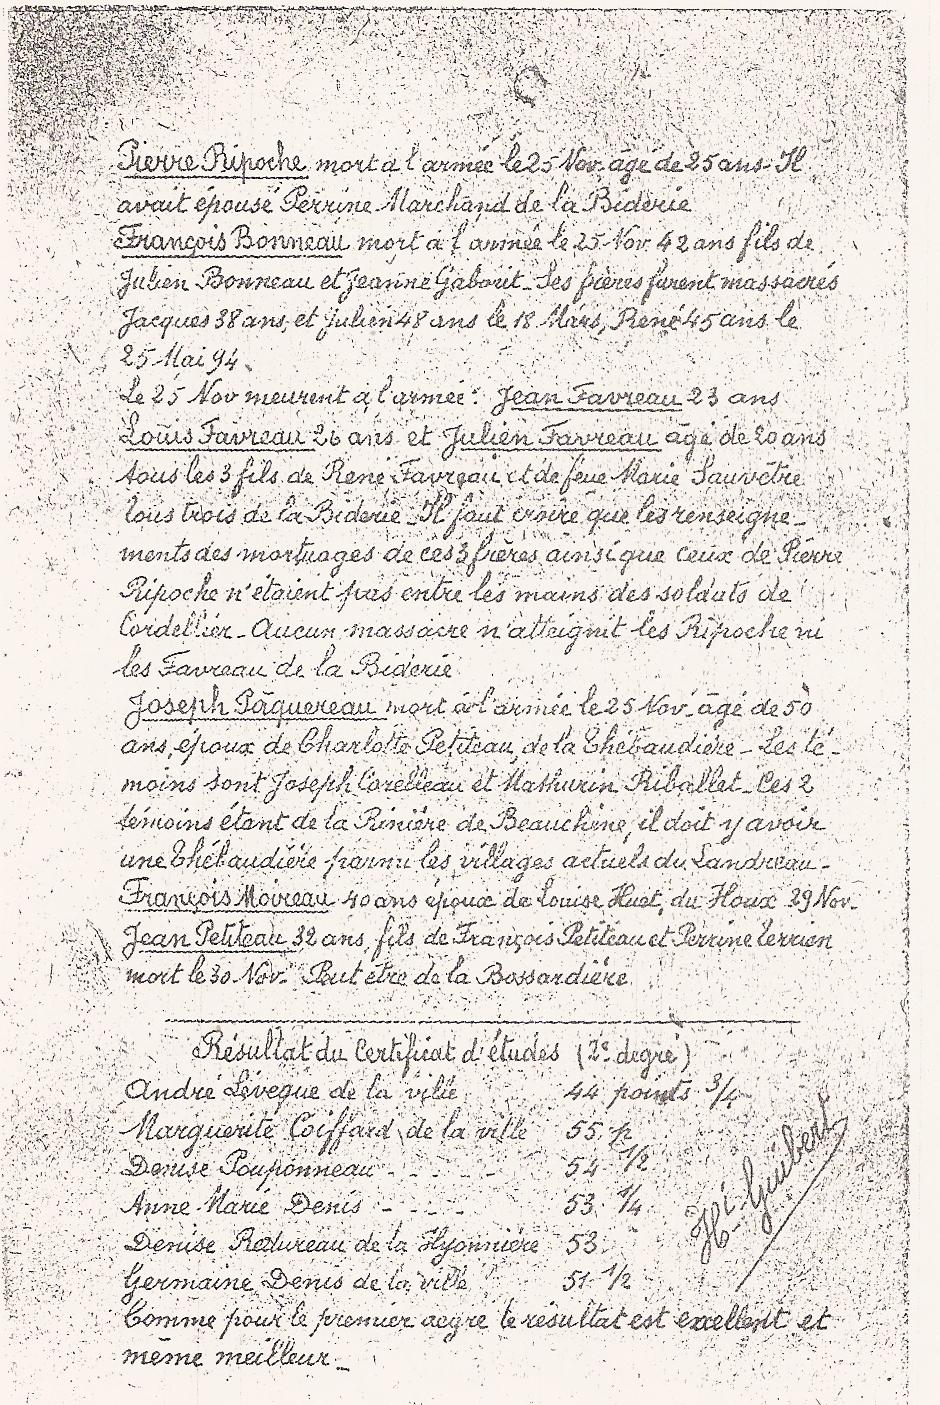 Pierre Ripoche mort à l'armée le 25 Nov. âgé de 25 ans - Il
avait épousé Perrine Marchand de la Biderie
François Bonneau mort à l'armée le 25 Nov. 42 ans fils de
Julien Bonneau et Jeanne Gaborit - Ses frères furent massacrés
Jacques 38 ans, et Julien 48 ans le 18 Mars, René 45 ans le
25 Mai 94.
Le 25 Nov meurent à l'armée : Jean Favreau 23 ans
Louis Favreau 26 ans et Julien Favreau âgé de 20 ans
tous les 3 fils de René Favreau et de feue Marie Sauvêtre
tous trois de la Biderie - Il faut croire que les renseigne-
ments des mortuages de ces 3 frères ainsi que ceux de Pierre
Ripoche n'étaient pas entre les mains des soldats de
Cordellier - Aucun massacre n'atteignit les Ripoche ni
les Favreau de la Biderie
Joseph Pâquereau mort à l'armée le 25 Nov. âgé de 50
ans, époux de Charlotte Petiteau, de la Thébaudière - Les té-
moins sont Joseph Corelleau et Mathurin Riballet - Ces 2
témoins étant de la Rinière de Beauchêne, il doit y avoir
une Thébaudière parmi les villages actuels du Landreau -
François Moireau 40 ans époux de Louise Huet, du Houx 29 Nov.
Jean Petiteau 32 ans, fils de François Petiteau et Perrine Terrien
mort le 30 Nov. Peut être de la Bossardière
Résultat du Certificat d'études (2e degré)
André Lévêque de la ville 44 points 3/4
Marguerite Coiffard de la ville 55 p
Denise Pouponneau - - - - 54 1/2
Anne Marie Denis - - - - 53 1/4
Denise Radureau de la Hyonnière 53
Germaine Denis de la ville 51 1/2
Comme pour le premier degré le résultat est excellent et
même meilleur -
Hi Guibert